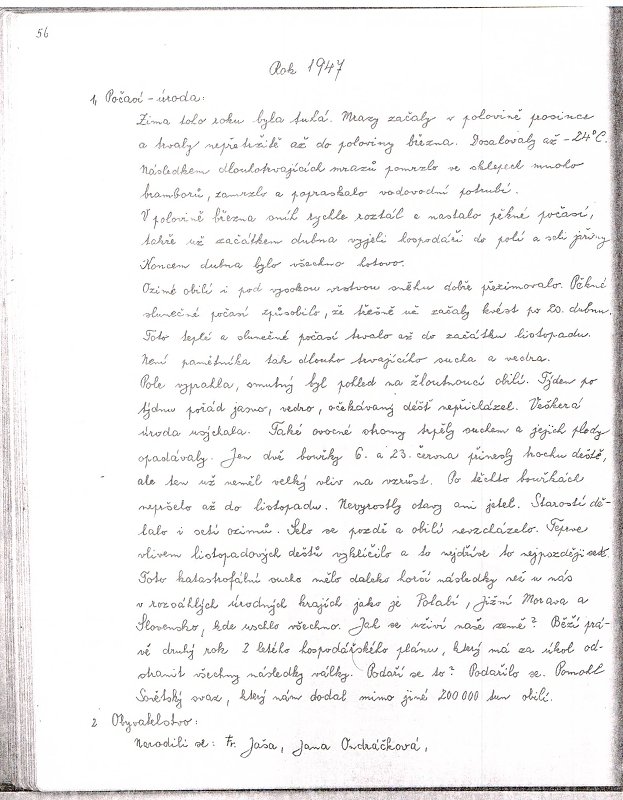 56
Rok 1947
1, Počasí - úroda:
Zima toho roku byla tuhá. Mrazy začaly v polovině prosince
a trvaly nepřetržitě až do poloviny března. Dosahovaly až -24°C.
Následkem dlouhotrvajících mrazů pomrzlo ve sklepech mnoho
bramborů, zamrzlo a popraskalo vodovodní potrubí.
V polovině března sníh rychle roztál a nastalo pěkné počasí,
takže už začátkem dubna vyjeli hospodáři do polí a seli jařiny
Koncem dubna bylo všechno hotovo.
Ozimé obilí i pod vysokou vrstvou sněhu dobře přezimovalo. Pěkné
slunečné počasí způsobilo, že třešně už začaly kvést po 20. dubnu.
Toto teplé a slunečné počasí trvalo až do začátku listopadu.
Není pamětníka tak dlouho trvajícího sucha a vedra.
Pole vyprahla, smutný byl pohled na žloutnoucí obilí. Týden po
týdnu pořád jasno, vedro, očekávaný déšť nepřicházel. Veškerá
úroda usychala. Také ovocné stromy trpěly suchem a jejich plody
opadávaly. Jen dvě bouřky 6. a 23. června přinesly trochu deště,
ale ten už neměl velký vliv na vzrůst. Po těchto bouřkách
nepršelo až do listopadu. Nevyrostly otavy ani jetel. Starosti dě-
lalo i setí ozimů. Selo se pozdě a obilí nevzcházelo. Teprve
vlivem listopadových dešťů vyklíčilo a to nejdříve to nejpozději seté.
Toto katastrofální sucho mělo daleko horší následky než u nás
v rozsáhlých úrodných krajích jako je Polabí, Jižní Morava a
Slovensko, kde uschlo všechno. Jak se uživí naše země? Běží prá-
vě druhý rok 2 letého hospodářského plánu, který má za úkol od-
stranit všechny následky války. Podaří se to? Podařilo se. Pomohl
Sovětský svaz, který nám dodal mimo jiné 200 000 tun obilí.
2 Obyvatelstvo:
Narodili se: Fr. Jaša, Jana Ondráčková,